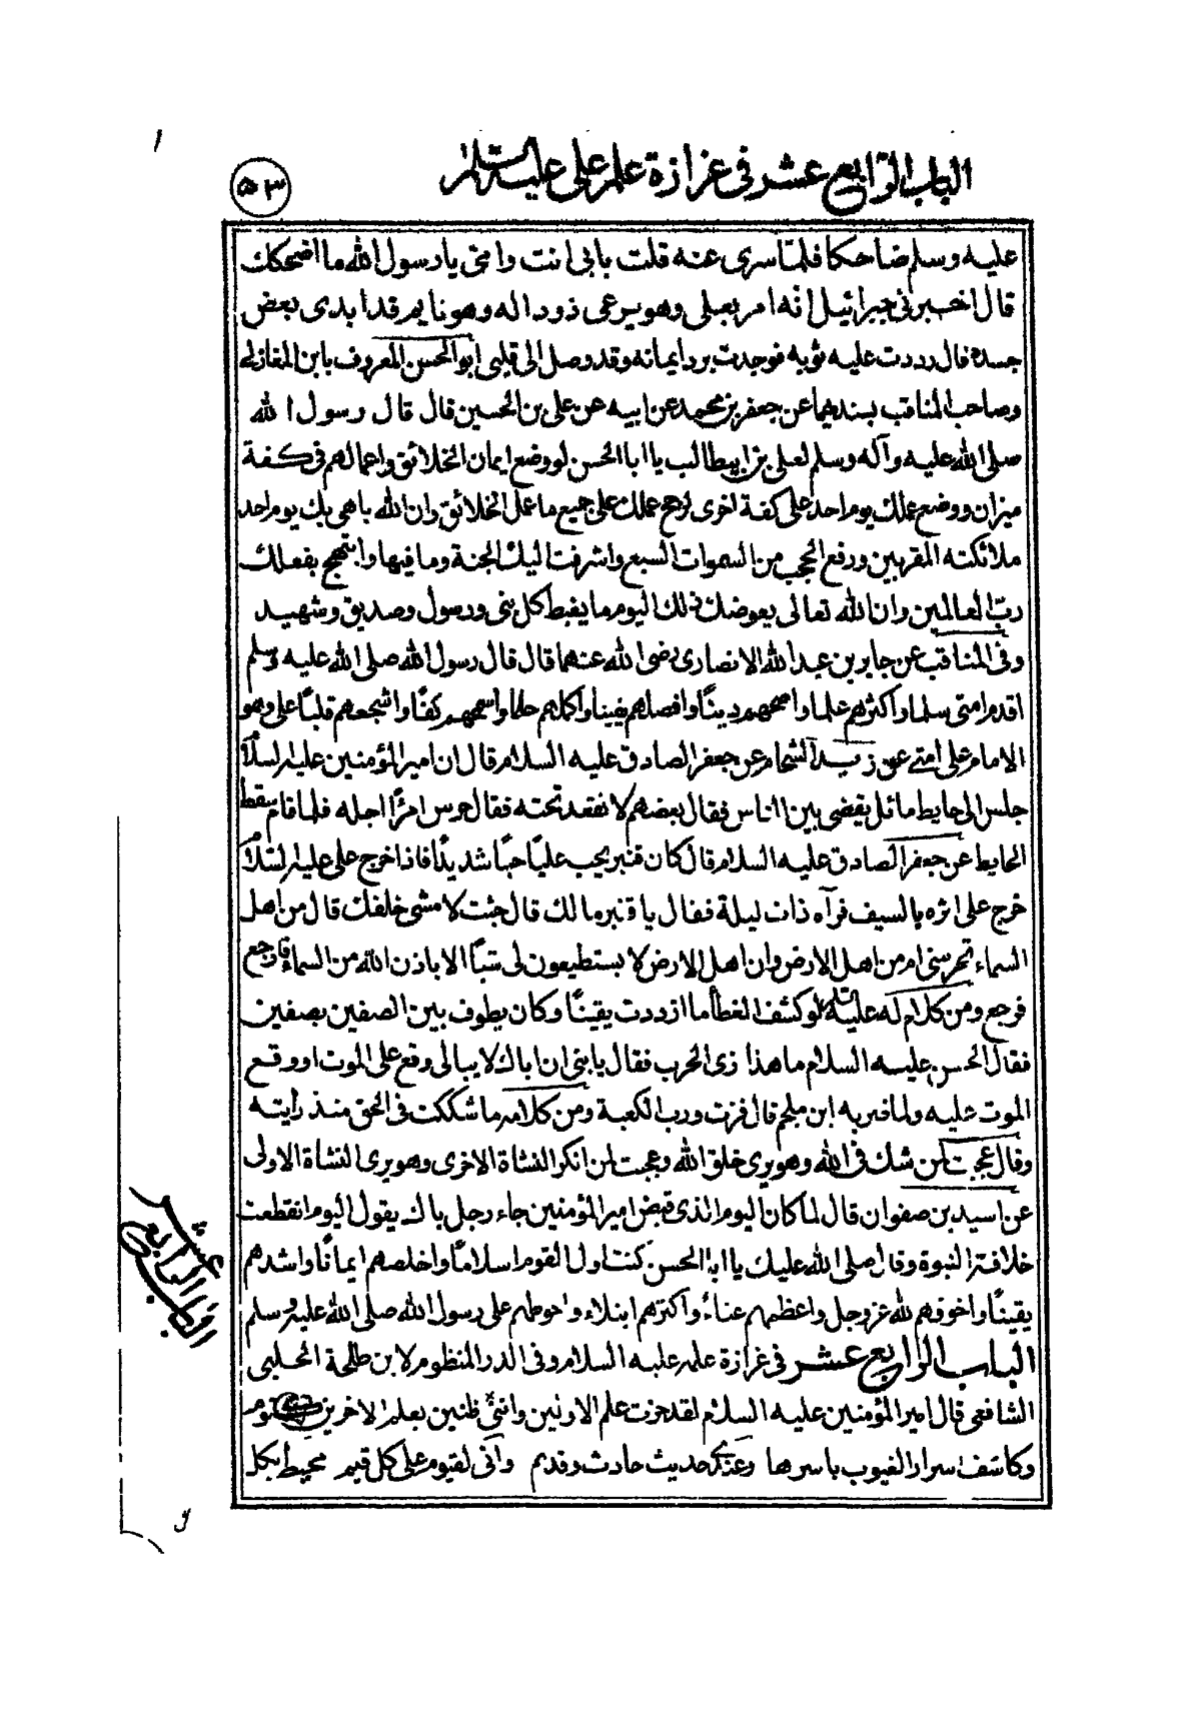 الباب الرابع عشر فى غزازة علم على عليه السلام
٥٣
عليه وسلم ضاحكا فلما سرى عنه قلت بابى انت وامى يا رسول الله ما اضحكك
قال اخبرنى جبرائيل انه امر بعلى وهو يرعى ذودا له وهو نايم قد ابدى بعض
جسده قال رددت عليه ثوبه فوجدت برد ايمانه وقد وصل الى قلبى ابو الحسن المعروف بابن المغازلى
وصاحب المناقب بسندهما عن جعفر بن محمد عن ابيه عن على بن الحسين قال قال رسول الله
صلى الله عليه وآله وسلم لعلى بن ابيطالب يا ابا الحسن لو وضع ايمان الخلائق واعمالهم فى كفة
ميزان ووضع عملك يوم احد على كفة اخرى لرجح عملك على جميع ما عمل الخلائق وان الله باهى بك يوم احد
ملائكته المقربين ورفع الحجب من السموات السبع واشرفت اليك الجنة وما فيها وابتهج بفعلك
رب العالمين وان الله تعالى يعوضك ذلك اليوم ما يغبط كل نبى ورسول وصديق وشهيد
وفى المناقب عن جابر بن عبد الله الانصارى رضى الله عنهما قال قال رسول الله صلى الله عليه وسلم
اقدم امتى سلما واكثرهم علما واصحهم دينًا وافضلهم يقينا واكملهم حلما واسمحهم كفًا واشجعهم قلبًا على وهو
الامام على امتى عن زيد الشحام عن جعفر الصادق عليه السلام قال ان امير المؤمنين عليه السلام
جلس الى حايط مائل يقضى بين الناس فقال بعضهم لا تقعد تحته فقال حرس امرًا اجله فلما قام سقط
الحايط عن جعفر الصادق عليه السلام قال كان قنبر يحب عليًا حبًا شديدًا فاذا خرج على عليه السلام
خرج على اثره بالسيف فرآه ذات ليلة فقال يا قنبر مالك قال جئت لامشى خلفك قال من اهل
السماء تحرسنى ام من اهل الارض وان اهل الارض لا يستطيعون لى شيئًا الا باذن الله من السماء فارجع
فرجع ومن كلام له عليه السلام لو كشف الغطأ ما ازددت يقينًا وكان يطوف بين الصفين بصفين
فقال الحسن عليه السلام ما هذا زى الحرب فقال يا بنى ان اباك لا يبالى وقع على الموت او وقع
الموت عليه ولما ضربه ابن ملجم قال فزت ورب الكعبة ومن كلامه ما شككت فى الحق منذ رايته
وقال عجبت لمن شك فى الله وهو يرى خلق الله وعجبت لمن انكر النشاة الاخرى وهو يرى النشاة الاولى
عن اسيد بن صفوان قال لما كان اليوم الذى قبض امير المؤمنين جاء رجل باك يقول اليوم انقطعت
خلافة النبوة وقال صلى الله عليك يا ابا الحسن كنت اول القوم اسلامًا واخلصهم ايمانًا واشدهم
يقينًا واخوفهم لله عز وجل واعظمهم عناءً واكثرهم ابتلاء واحوطهم على رسول الله صلى الله عليه وسلم
الباب الرابع عشر فى غزازة علمه عليه السلام وفى الدر المنظوم لابن طلحة الحلبى
الشافعى قال امير المؤمنين عليه السلام لقد حزت علم الاولين وانى ظنين بعلم الاخرين كتوم
وكاشف اسرار الغيوب باسرها وعندى حديث حادث وقديم وانى لقيوم على كل قيم محيط بكل
الباب الرابع عشر